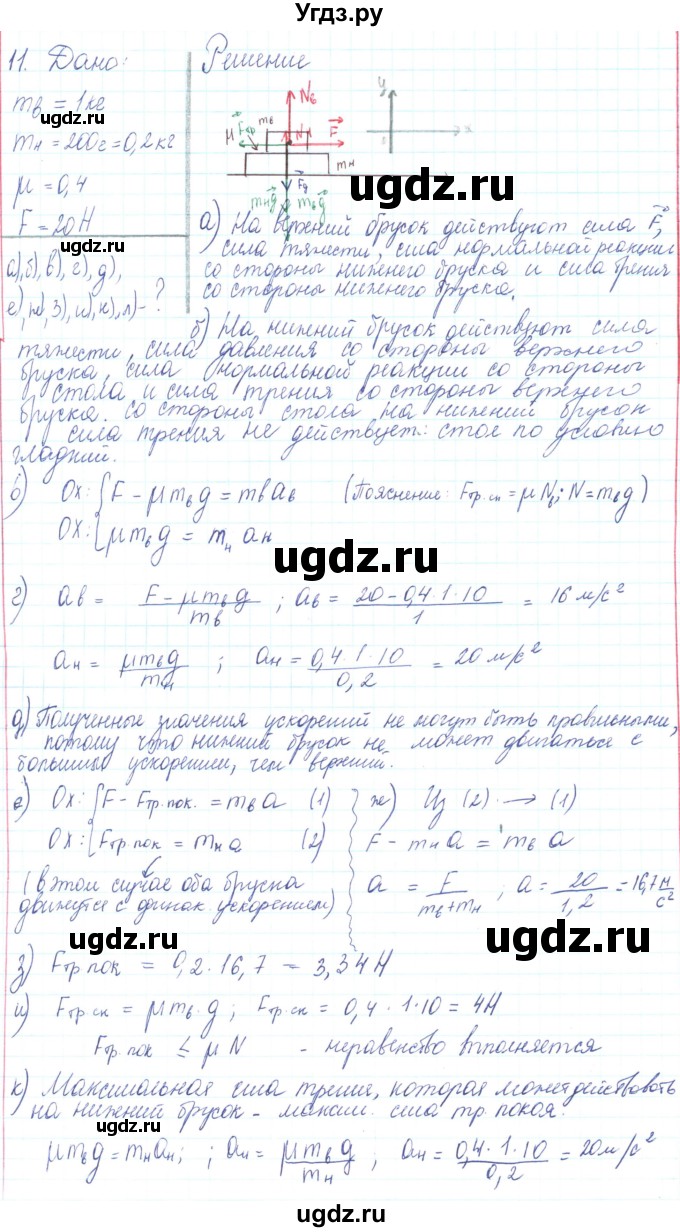 Угдз.ру
11. Дано:
Решение
mв = 1 кг
mн = 200г = 0,2 кг
μ = 0,4
F = 20 Н
а), б), в), г), д),
е), ж), з), и), к), л) - ?
Nв
mв
μ
Fтр
N
F
mн
Fg
mнg
mвg
y
x
а) На верхний брусок действуют сила F,
сила тяжести, сила нормальной реакции
со стороны нижнего бруска и сила трения
со стороны нижнего бруска.
б) На нижний брусок действуют сила
тяжести, сила давления со стороны верхнего
бруска, сила нормальной реакции со стороны
стола и сила трения со стороны верхнего
бруска. Со стороны стола на нижний брусок
сила трения не действует: стол по условию
гладкий.
в) Ox: { F - μmвg = mвaв (Пояснение: Fтр.ск = μNв; N = mвg)
Ox: { μmвg = mнaн
г) aв = (F - μmвg)/mв ; aв = (20 - 0,4·1·10)/1 = 16 м/с²
aн = μmвg/mн ; aн = (0,4·1·10)/0,2 = 20 м/с²
д) Полученные значения ускорений не могут быть правильными,
потому что нижний брусок не может двигаться с
большим ускорением, чем верхний.
е) Ox: { F - Fтр.пок. = mвa (1)
Ox: { Fтр.пок = mнa (2)
(в этом случае оба бруска
движутся с одинак. ускорением)
ж) Из (2) → (1)
F - mнa = mвa
a = F/(mв+mн) ; a = 20/1,2 = 16,7 м/с²
з) Fтр.пок = 0,2·16,7 = 3,34 Н
и) Fтр.ск = μmв·g ; Fтр.ск = 0,4·1·10 = 4Н
Fтр.пок ≤ μN - неравенство выполняется
к) Максимальная сила трения, которая может действовать
на нижний брусок - максим. сила тр. покоя.
μmвg = mнaн; ; aн = μmвg/mн ; aн = (0,4·1·10)/0,2 = 20 м/с²
ugdz.ru
ugdz.ru
ugdz.ru
ugdz.ru
ugdz.ru
ugdz.ru
ugdz.ru
ugdz.ru
ugdz.ru
ugdz.ru
ugdz.ru
ugdz.ru
ugdz.ru
ugdz.ru